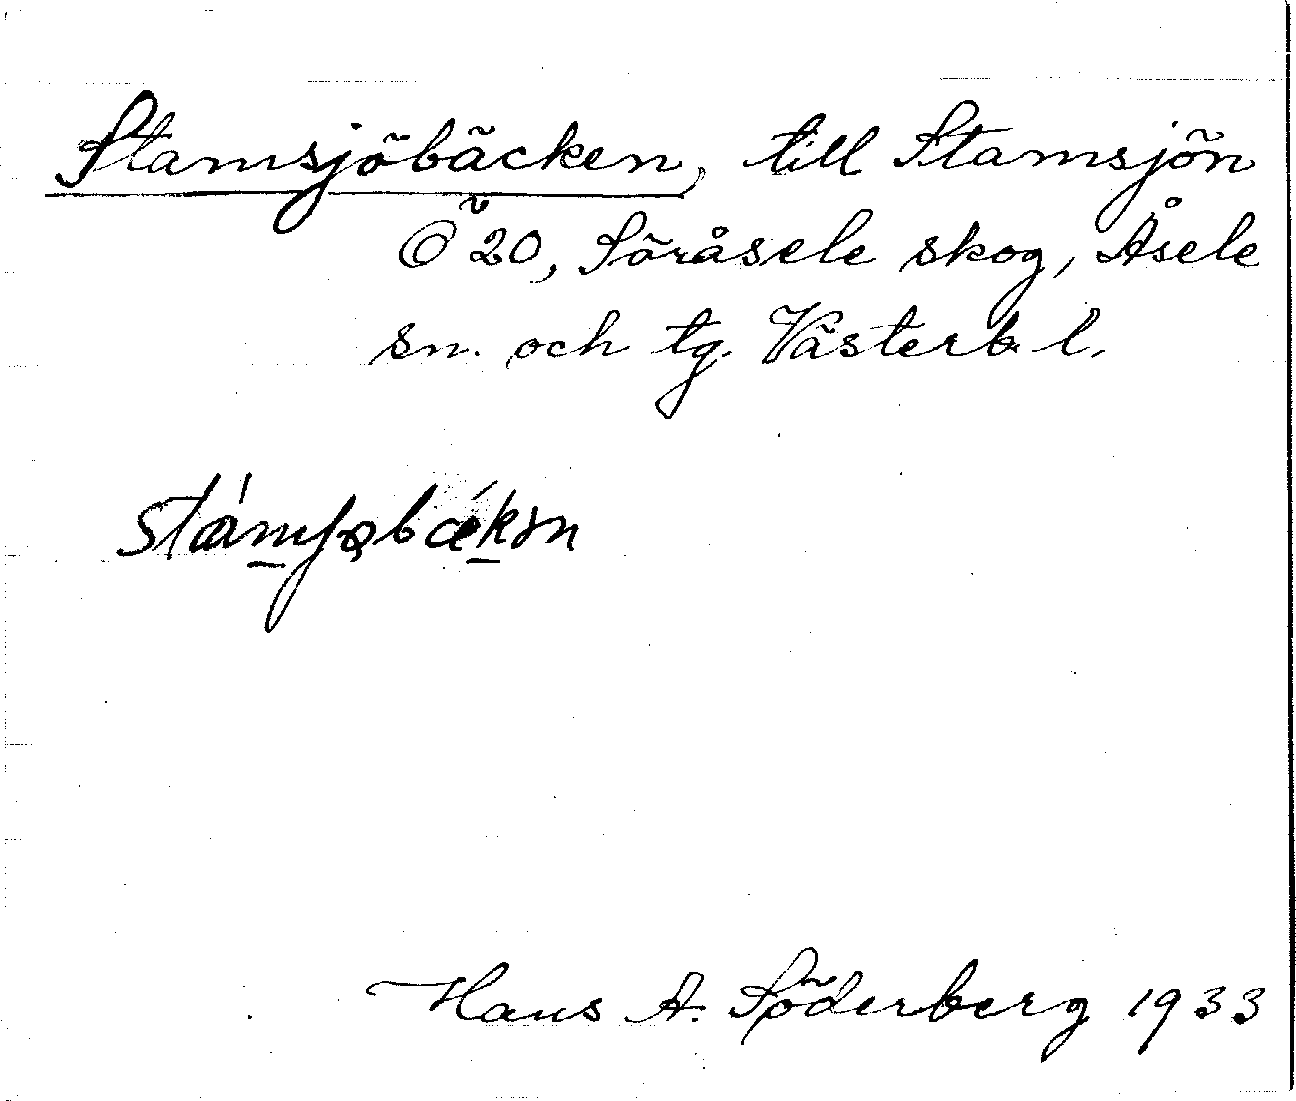 Stamsjöbäcken, till Stamsjön
Ö 20, Söråsele skog, Åsele
sn. och tg. Västerb. l.
Hans A. Söderberg 1933